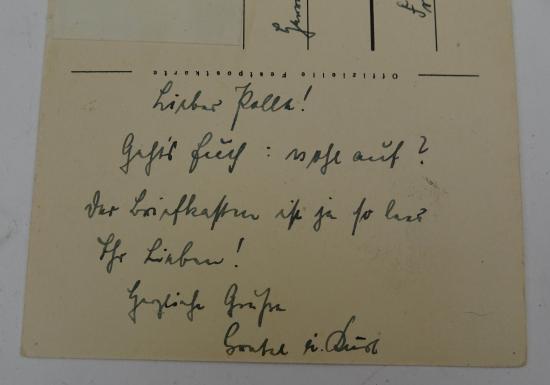 Offizielle Festpostkarte
Lieber Polle!
Geht's Euch : wohl auf?
Der Briefkasten ist ja so leer
Ihr Lieben!
Herzliche Grüße
Gretel u. Kurt